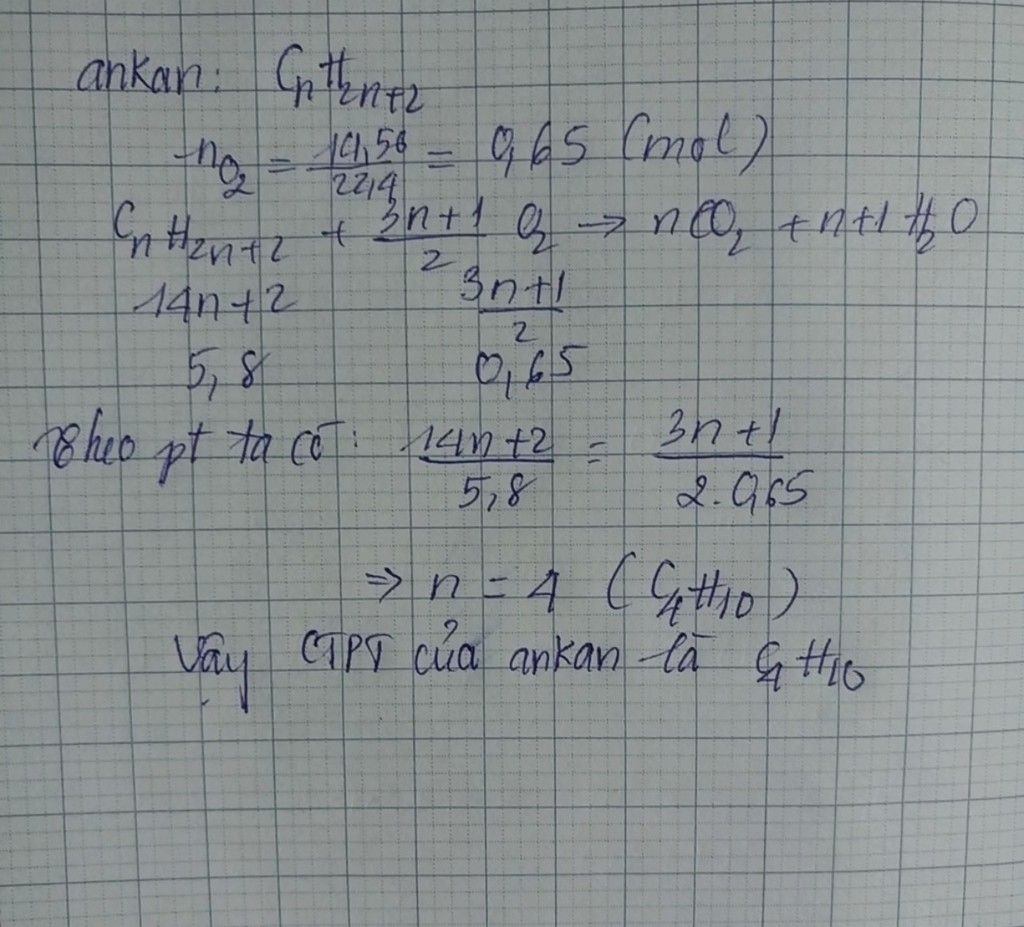 ankan: CnH2n+2
nO2 = 14,56/22,4 = 0,65 (mol)
CnH2n+2 + (3n+1)/2 O2 → nCO2 + n+1 H2O
14n+2 (3n+1)/2
5,8 0,65
Theo pt ta có: (14n+2)/5,8 = (3n+1)/(2.0,65)
⇒ n = 4 (C4H10)
Vậy CTPT của ankan là C4H10